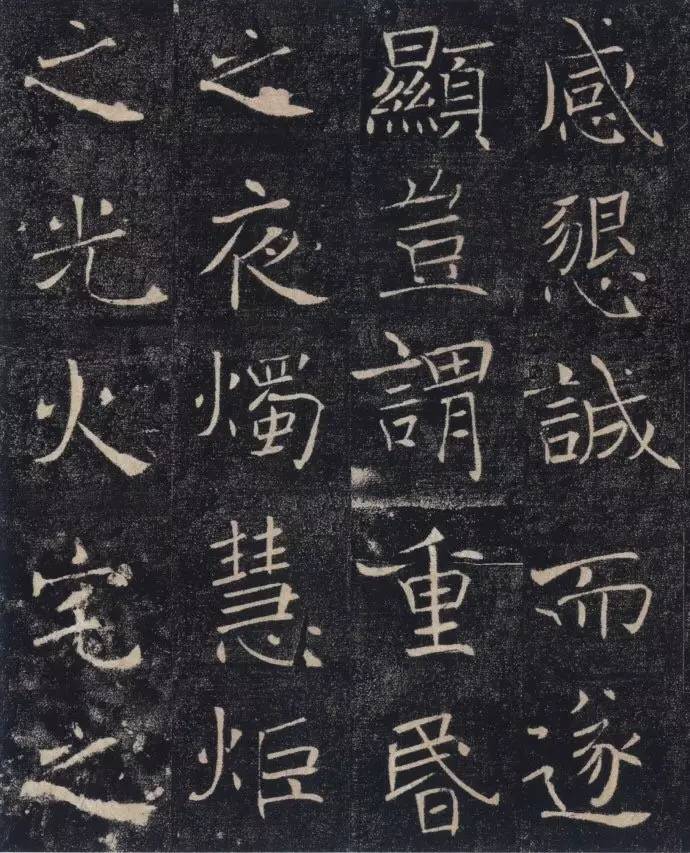 感懇誠而遂
顯豈謂重昬
之夜燭慧炬
之光火宅之